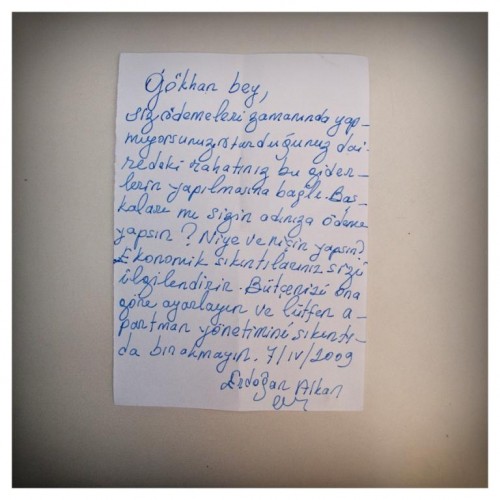 Gökhan bey,
siz ödemeleri zamanında yap-
mıyorsunuz. Oturduğunuz dai-
redeki rahatınız bu gider-
lerin yapılmasına bağlı. Baş-
kaları mı sizin adınıza ödeme
yapsın? Niye ve niçin yapsın?
Ekonomik sıkıntılarınız sizi
ilgilendirir. Bütçenizi ona
göre ayarlayın ve lütfen a-
partman yönetimini sıkıntı-
da bırakmayın. 7/IV/2009
Erdoğan Alkan